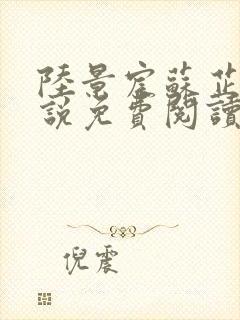 陸景宦蘇芷
說免費閱讀
倪震